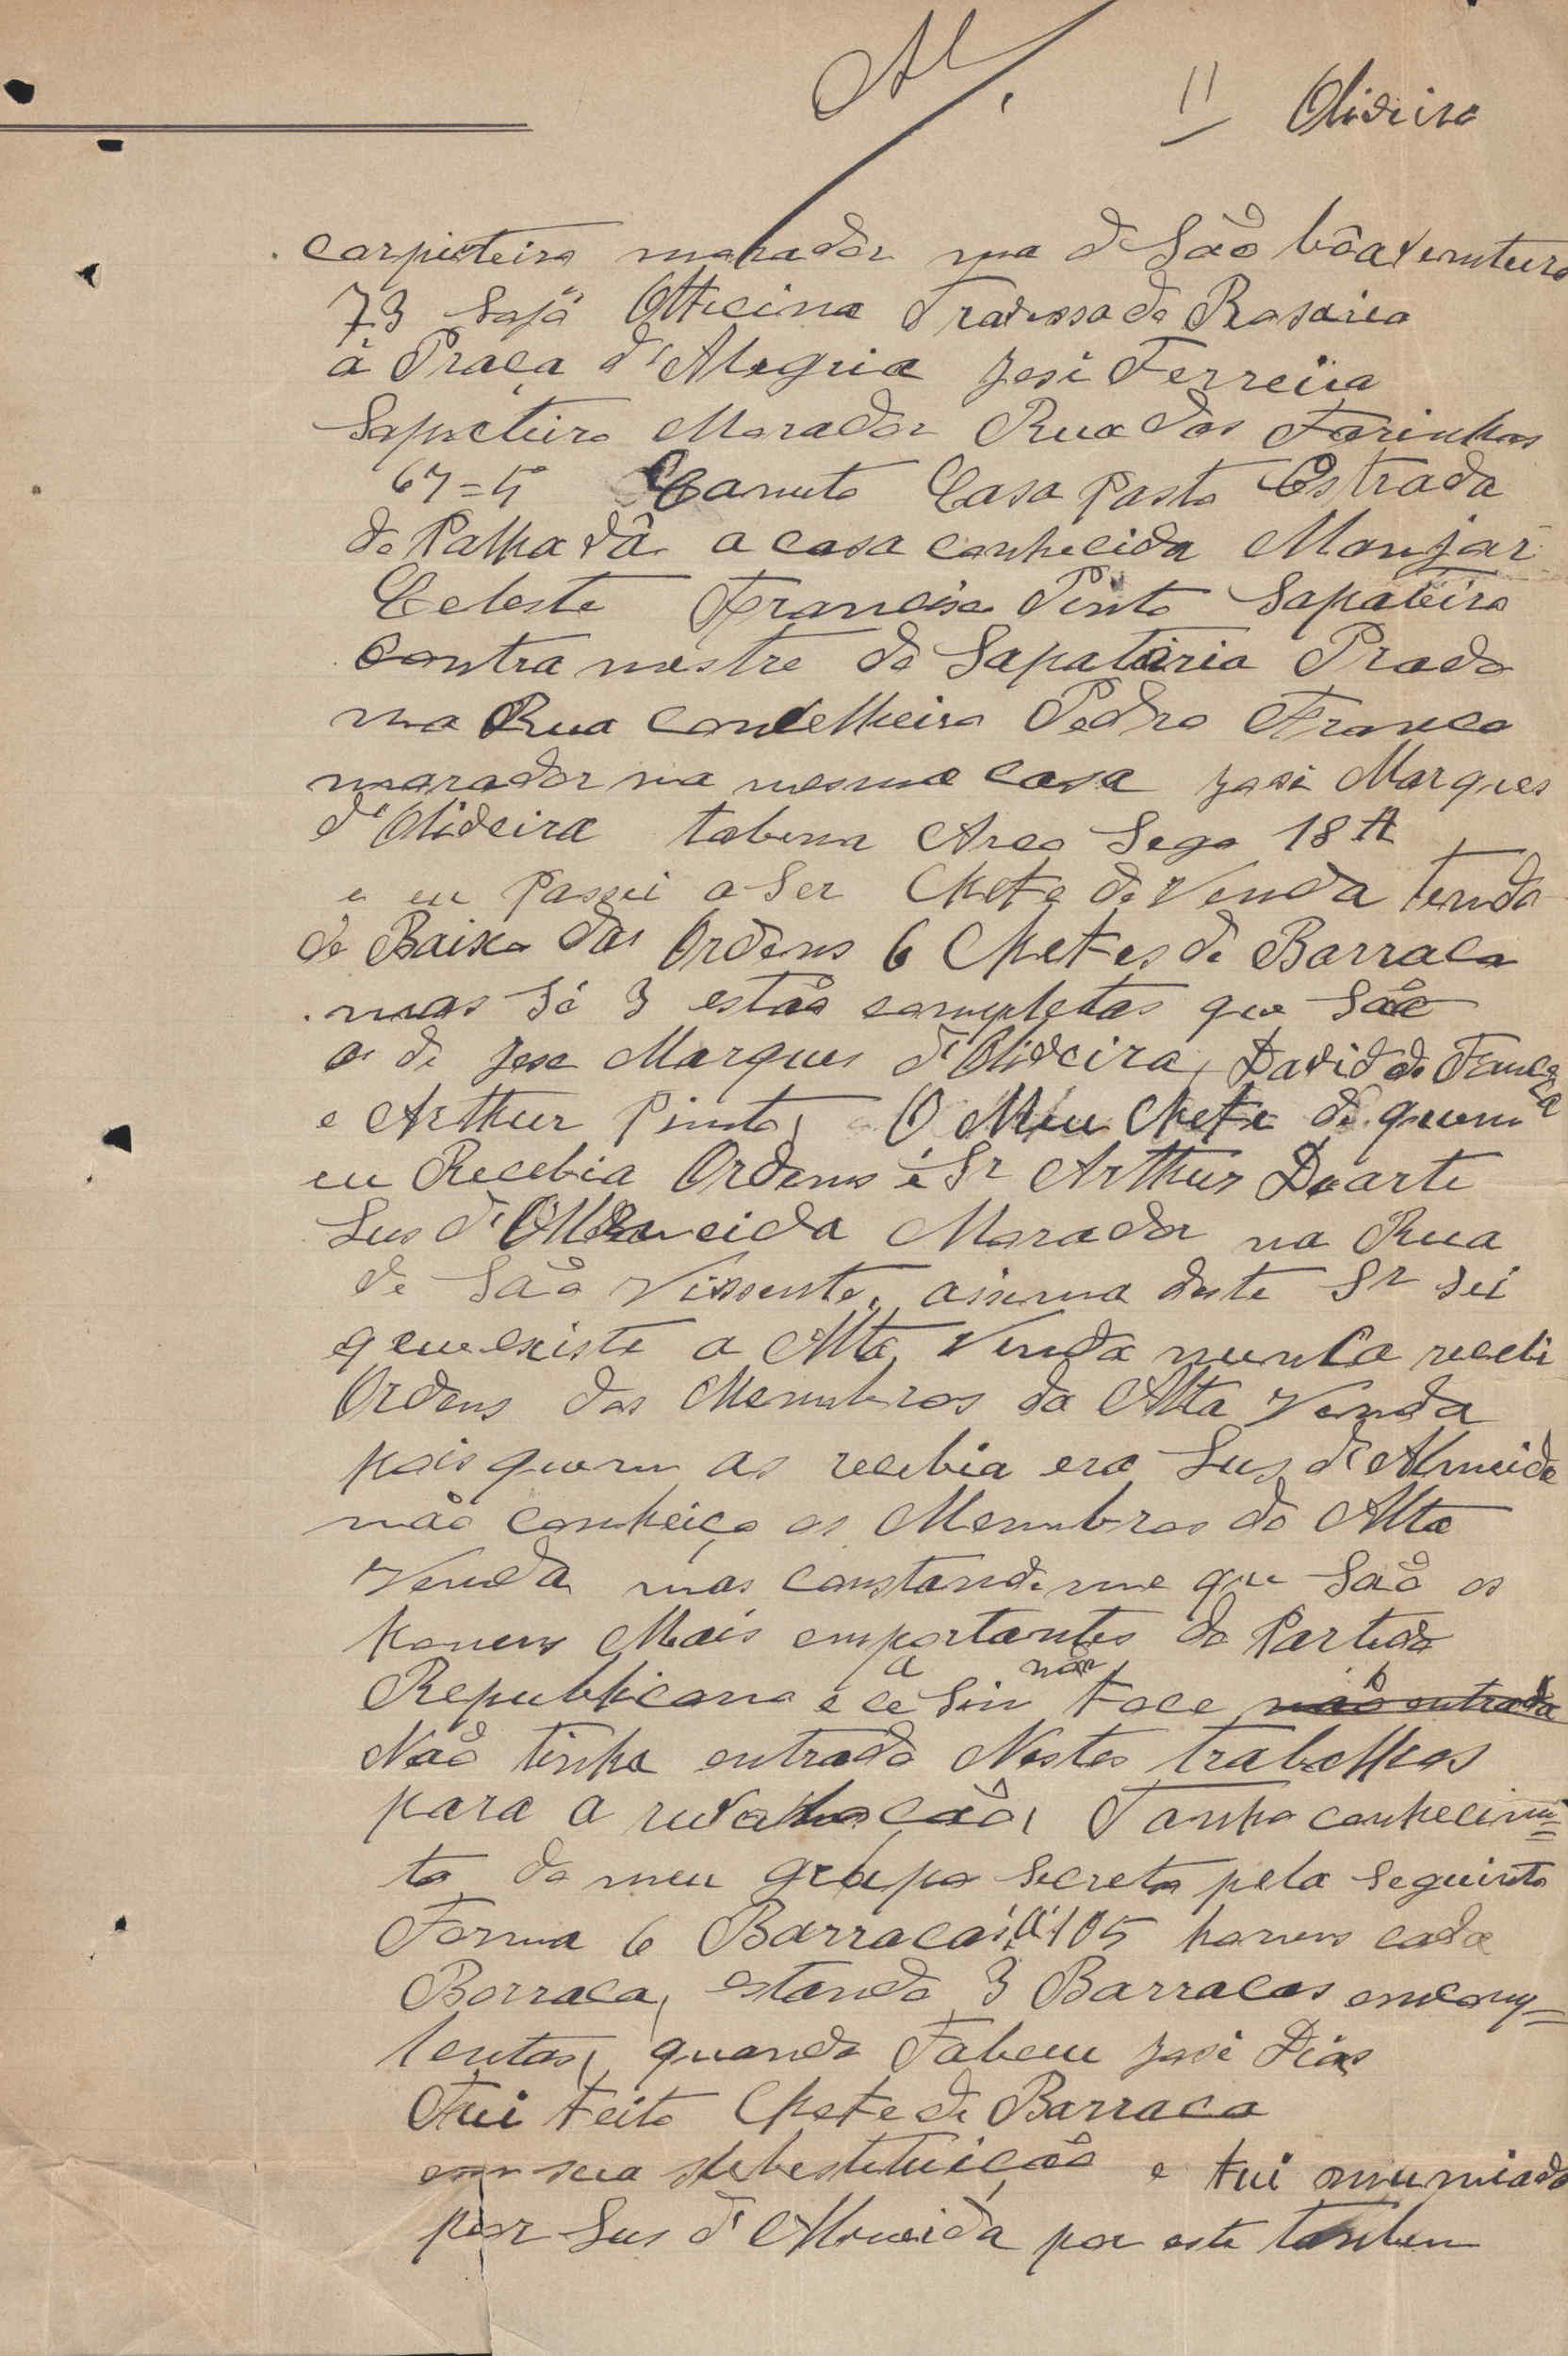 11 Oliveira
carpinteiro morador rua de São bôaventura
73 Officina Travessa do Rosairio
á Praça d'Alegria José Ferreiia
Sapateiro Morador Rua das Farinhas
67=5º Canuto Casa Pasto Estrada
do Palhavâ a casa conhecida Manjar
Celeste Francisco Pinto Sapateiro
contra mestre da Sapataria Prado
na Rua concelheiro Pedro Franco
morador na mesma casa José Marques
d'Olideira taberna Arco Sego 18 A
e eu Passei a Ser Chefe de Venda tendo
de Baixo das Ordens 6 Chefes de Barraca
mas Só 3 estão completas que São
as de Jose Marques d'Olideira, David da
e Arthur Pinto, O Meu Chefe de quem
eu Recebia Ordens é Sr Arthur Duarte
Lus d'Almeida Morador na Rua
de São Vissente, assima deste Sr sei
que existe a Alta Venda nunca recebi
Ordens dos Membros da Alta Venda
pois quem as recebia era Lus d'Almeida
não conheiço os Membros da Alta
Venda mas constandome que São os
homens Mais emportantes do Partido
Republicano e ce a Sim não foce não entrada
Não tinha entrado Nestes trabalhos
para a revolucão, Tanho conhecim=
to do meu grupo secreto pela seguinte
Forma 6 Barracas a 105 homens cada
Barraca, estando 3 Barracas emcomp=
lentas, quando Faleceu José Dias
Fui Feito Chefe de Barraca
em sua substituição e fui
por Lus d'Almeida por este tanbem